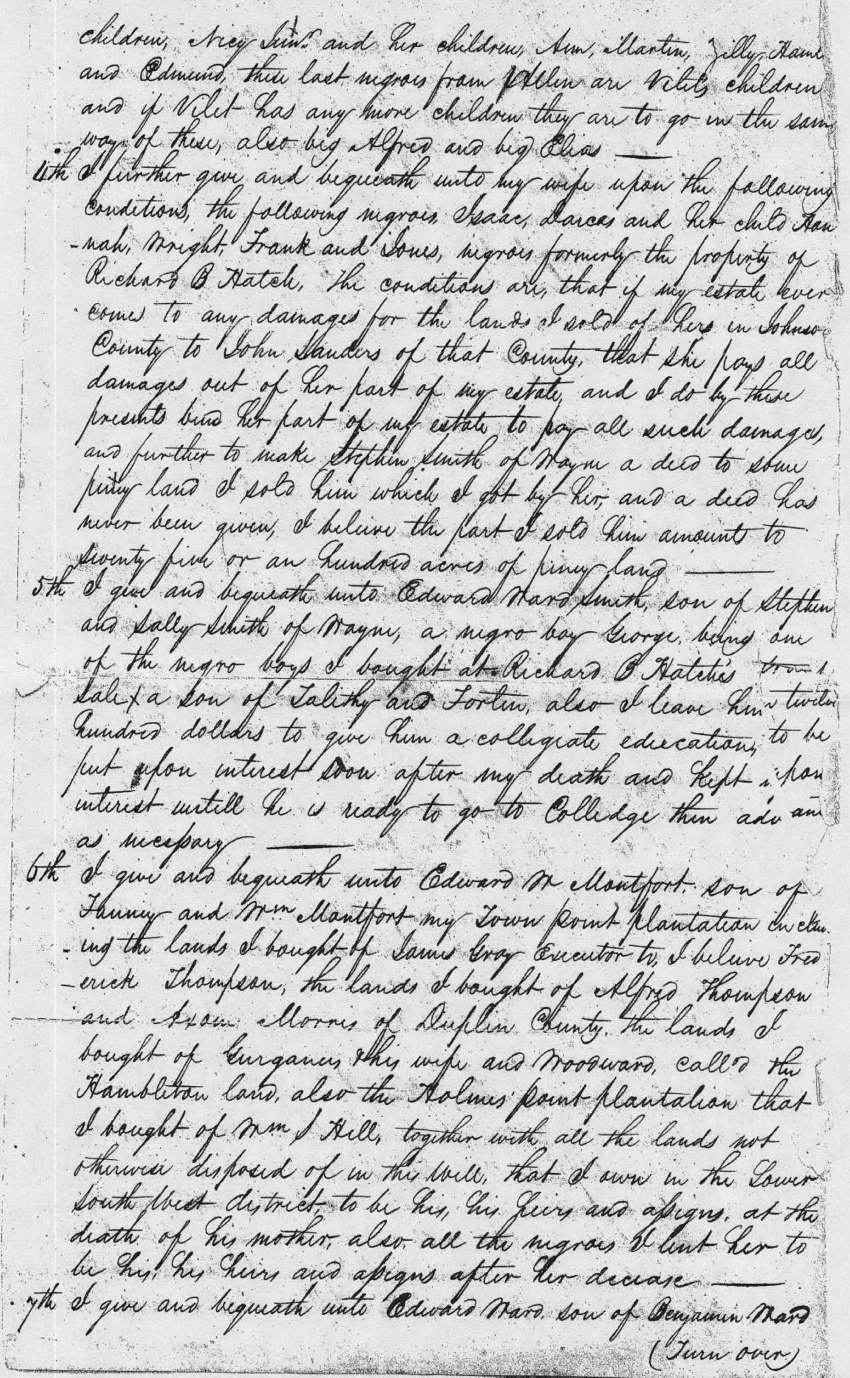 children, Nicy Junr. and her children, Ann, Martin, Zilly, Hame
and Edmund, these last negroes from Allen are Vilets children
and if Vilet has any more children they are to go in the same
way of these, also big Alfred and big Elias
4th I further give and bequeath unto my wife upon the following
conditions, the following negroes, Isaac, Darcas and her child Han
-nah, Wright, Frank and Jones, negroes formerly the property of
Richard B Hatch, The conditions are, that if my estate ever
comes to any damages for the lands I sold of hers in Johnso
County to John Sanders of that County, that she pays all
damages out of her part of my estate, and I do by these
presents bind her part of my estate to pay all such damages,
and further to make Stephen Smith of Wayne a deed to some
piney land I sold him which I got by her, and a deed has
never been given, I beleive the part I sold him amounts to
seventy five or an hundred acres of piney land
5th I give and bequeath unto Edward Ward Smith, son of Stephen
and Sally Smith of Wayne, a negro boy George, being one
of the negro boys I bought at Richard B Hatch's
sale, a son of Talithy and Fortin, also I leave him twelve
hundred dollars to give him a collegiate education, to be
put upon interest soon after my death and kept upon
interest untill he is ready to go to Colledge then advane
as necessary
6th I give and bequeath unto Edward W Montfort, son of
Fanney and Wm Montfort my Town point plantation includ
-ing the lands I bought of James Gray Executor to, I beleive Fred
-erick Thompson, the lands I bought of Alfred Thompson
and Axom Morris of Duplin County, the lands I
bought of Gurganus & his wife and Woodward, call'd the
Hambleton land, also the Holmes point plantation that
I bought of Wm S Hill, together with all the lands not
otherwise disposed of in this Will, that I own in the Lower
South West district, to be his, his heirs and assigns, at the
death of his mother, also, all the negroes I lent her to
be his, his heirs and assigns after her decease
7th I give and bequeath unto Edward Ward son of Benjamin Ward
(Turn over)